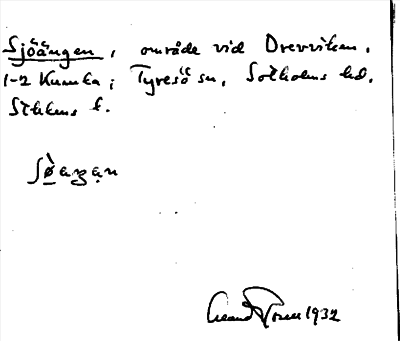 Sjöängen, område vid Drevviken.
1-2 Kumla; Tyresö sn, Sotholms hd.
Sthlms l.
ʃø̀aŋan
1932